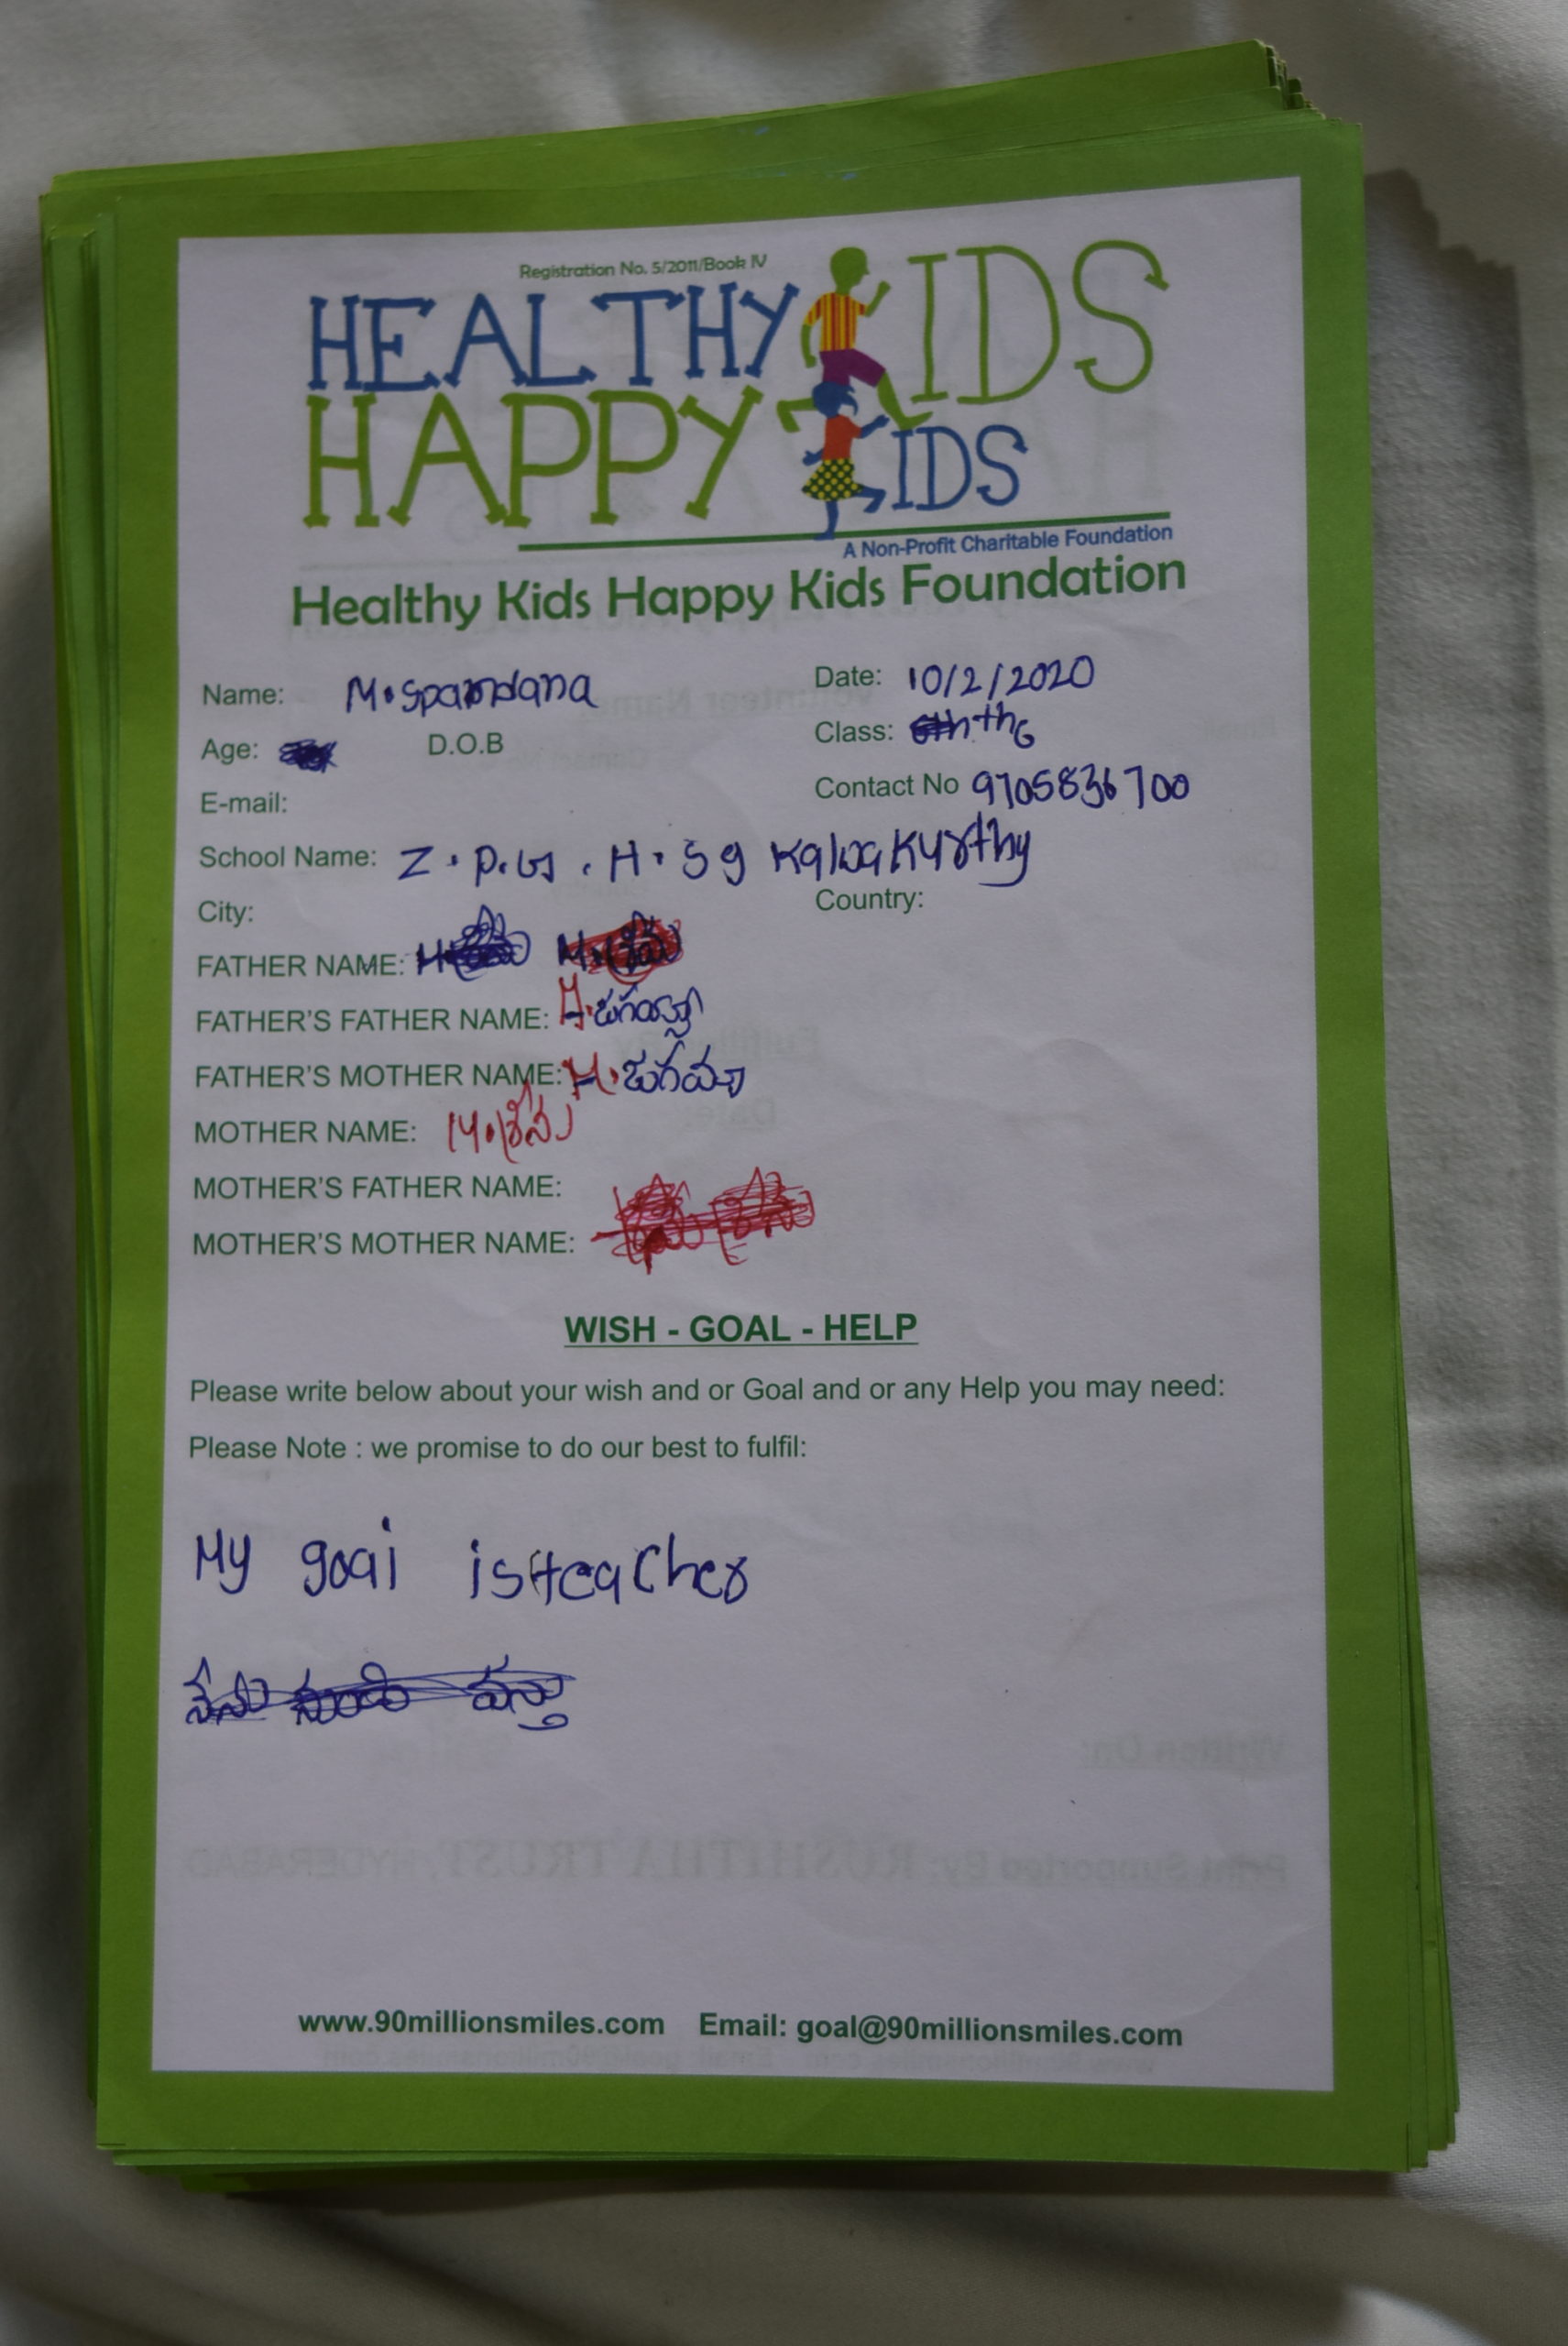 Registration No. 5/2011/Book IV
HEALTHY KIDS
HAPPY KIDS
A Non-Profit Charitable Foundation
Healthy Kids Happy Kids Foundation
Name: M.Spandana Date: 10/2/2020
Age: D.O.B Class: 6th th6
E-mail: Contact No 9705836700
School Name: Z.P.G.H.S g Kalwakurthy
City: Country:
FATHER NAME:
FATHER'S FATHER NAME: M.
FATHER'S MOTHER NAME: M.
MOTHER NAME: M.
MOTHER'S FATHER NAME:
MOTHER'S MOTHER NAME:
WISH - GOAL - HELP
Please write below about your wish and or Goal and or any Help you may need:
Please Note : we promise to do our best to fulfil:
My goal is teacher
www.90millionsmiles.com Email: goal@90millionsmiles.com